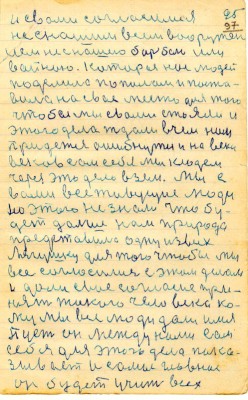 96
97
и своми согласимся
не с нашим всем вооружен
ием не с нашею борьбою или
ватною. Которая нас людей
поделила пополам и поста
вила на свое место для того
чтобы мы своим стояли и
этого дела ждали в чем нам
придется ошибнуться и на веки
веков сам себя мы кладем
через это дело в зем. Мы с
вами все живущие люди
но этого не знали что бу-
дет дальше нам природа
представила одну из всех
для того чтобы мы
все согласились с этим делом
и дали свое согласие при-
нять такого человека ко
му мы все люди дали имя
Пусть он между нами сам
себя для этого дела пока
зывает и самое главное
он будет учить всех